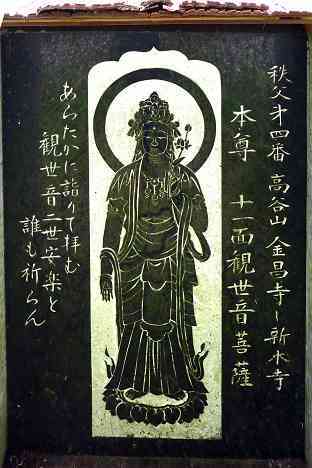 秩父才四番 高谷山 金昌寺 新木寺
本尊 十一面観世音菩薩
あらたかに詣りて拝む
観世音二世安楽と
誰も祈らん